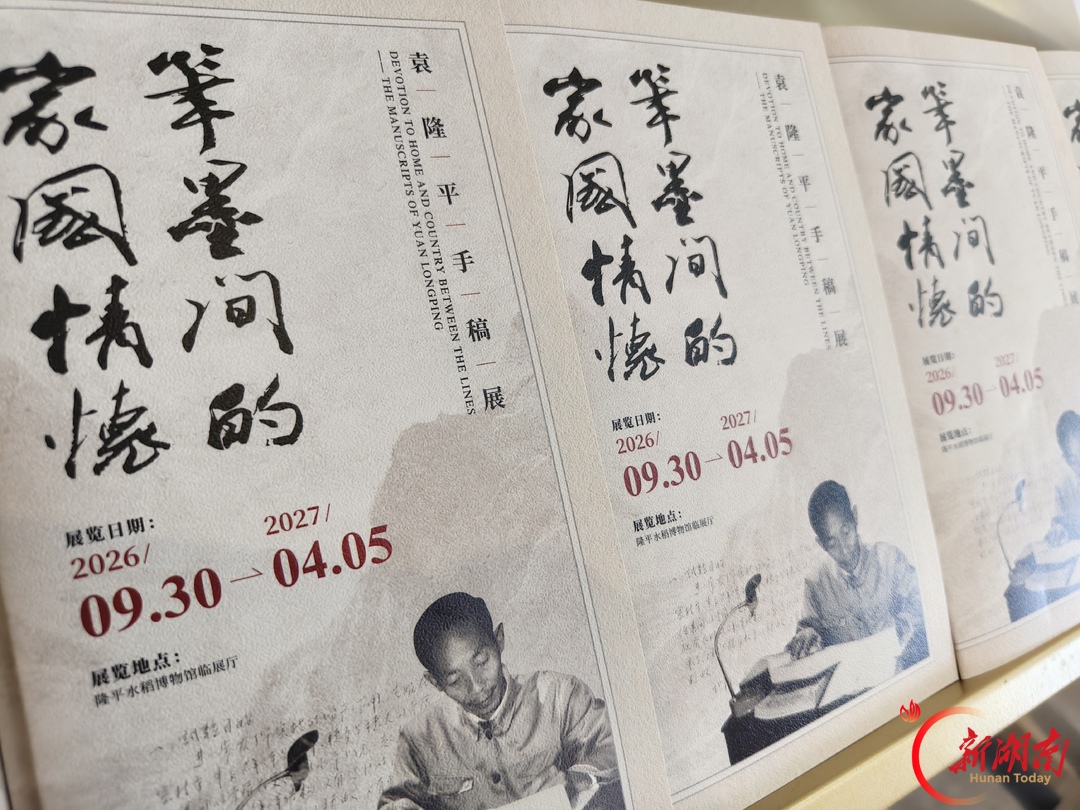 袁隆平手稿展
DEVOTION TO HOME AND COUNTRY BETWEEN THE LINES
— THE MANUSCRIPTS OF YUAN LONGPING
筆墨间的
家國情懷
展览日期：
2026/ 2027/
09.30 — 04.05
展览地点：
隆平水稻博物馆临展厅
袁隆平手稿展
DEVOTION TO HOME AND COUNTRY BETWEEN THE LINES
— THE MANUSCRIPTS OF YUAN LONGPING
筆墨间的
家國情懷
展览日期：
2026/ 2027/
09.30 — 04.05
展览地点：
隆平水稻博物馆临展厅
袁隆平手稿展
筆墨间的
家國情懷
展览日期：
2026/ 2027/
09.30 — 04.05
展览地点：
隆平水稻博物馆临展厅
新湖南
Hunan Today